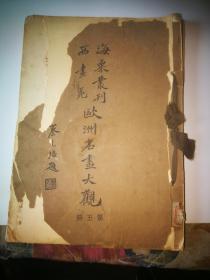 海粟叢刊
西畫苑
歐洲名畫大觀
第五冊
蔡元培題